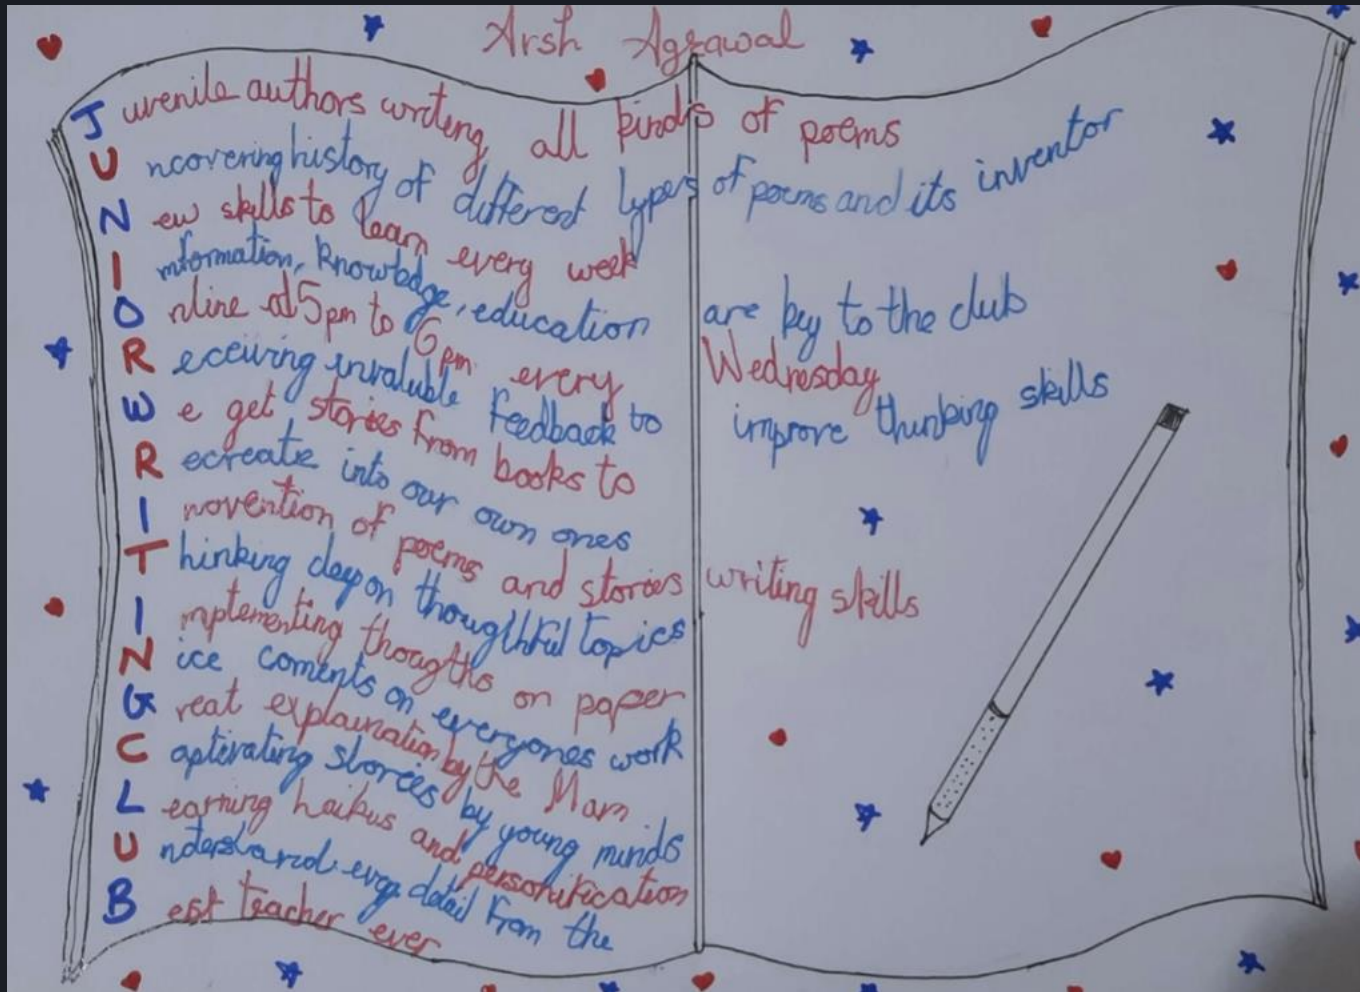 Arsh Agrawal
Juvenile authors writing all kinds of poems
Uncovering history of different types of poems and its inventor
New skills to learn every week
Information, knowledge, education are key to the club
Online at 5pm to 6pm every Wednesday
Receiving invaluble feedback to improve thinking skills
We get stories from books to
Recreate into our own ones
Inovention of poems and stories writing skills
Thinking deep on thoughtful topics
Implementing thougths on paper
Nice coments on everyones work
Great explaination by the Mam
Captivating stories by young minds
Learning haikus and personification
Understand every detail from the
Best teacher ever